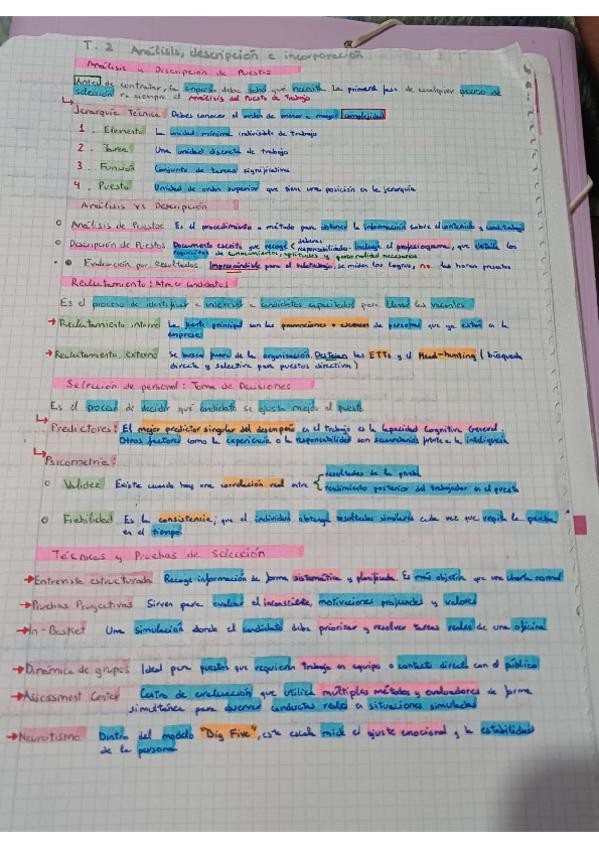 T. 2 Análisis, descripción e incorporación
Análisis y Descripción de Puestos
Antes de contratar, la empresa debe saber qué necesita. La primera fase de cualquier proceso de
selección es siempre el Análisis del Puesto de Trabajo
Jerarquía Técnica: Debes conocer el orden de menor a mayor complejidad
1. Elemento La unidad mínima indivisible de trabajo
2. Tarea Una unidad discreta de trabajo
3. Función Conjunto de tareas significativas
4. Puesto Unidad de orden superior que tiene una posición en la jerarquía
Análisis vs Descripción
Análisis de Puestos Es el procedimiento o método para obtener la información sobre el contenido y
Descripción de Puestos Documento escrito que recoge deberes
responsabilidades. Incluye el profesiograma, que detalla los
requisitos de conocimientos, aptitudes y personalidad necesarios
Evaluación por Resultados Imprescindible para el teletrabajo, se miden los logros, no las horas pasadas
Reclutamiento: Atraer Candidatos
Es el proceso de identificar e interesar a candidatos capacitados para llenar las vacantes
Reclutamiento interno La fuente principal son las promociones o ascensos de personal que ya están en la
empresa
Reclutamiento externo Se busca fuera de la organización. Destacan las ETTs y el Head-hunting (búsqueda
directa y selectiva para puestos directivos)
Selección de personal: Toma de Decisiones
Es el proceso de decidir qué candidato se ajusta mejor al puesto
Predictores: El mejor predictor singular del desempeño en el trabajo es la Capacidad Cognitiva General.
Otros factores como la experiencia o la responsabilidad son secundarios frente a la inteligencia
Psicometría:
Validez Existe cuando hay una correlación real entre resultados de la prueba
rendimiento posterior del trabajador en el puesto
Fiabilidad Es la consistencia; que el individuo obtenga resultados similares cada vez que repita la prueba
en el tiempo
Técnicas y Pruebas de Selección
Entrevista estructurada Recoge información de forma sistemática y planificada. Es más objetiva que una charla normal
Pruebas Proyectivas Sirven para evaluar el inconsciente, motivaciones profundas y valores
In-Basket Una simulación donde el candidato debe priorizar y resolver tareas reales de una oficina
Dinámica de grupos Ideal para puestos que requieren trabajo en equipo o contacto directo con el público
Assessment Center Centro de evaluación que utiliza múltiples métodos y evaluadores de forma
simultánea para observar conductas reales a situaciones simuladas
Neurotismo Dentro del modelo "Big Five", esta escala mide el ajuste emocional y la estabilidad
de la persona